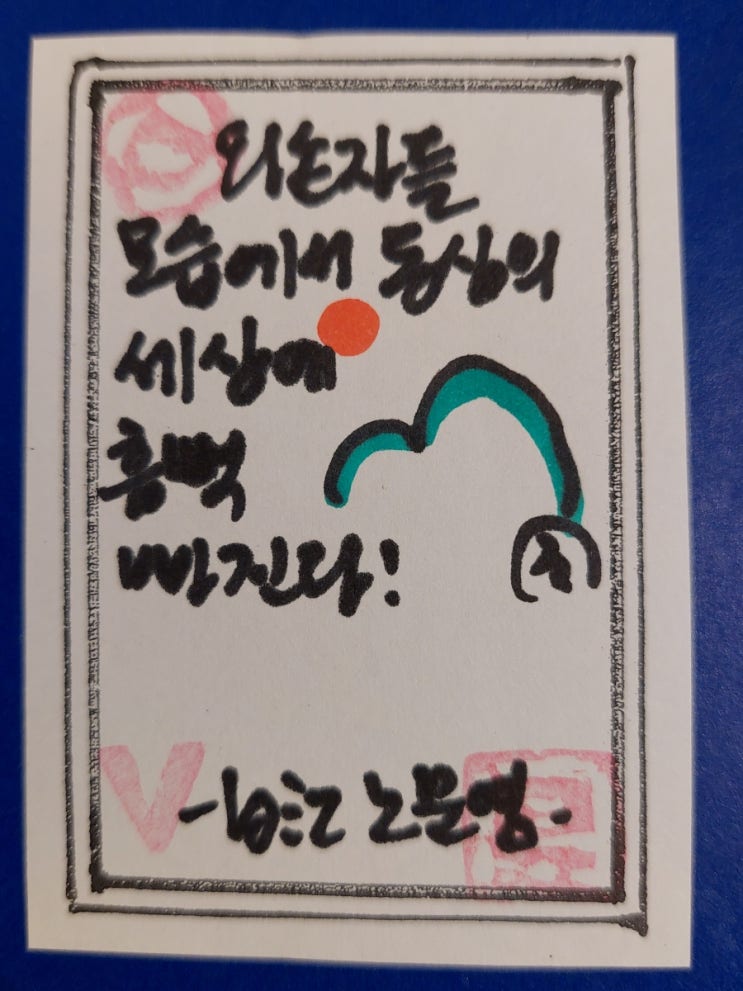 외손자들
모습에서 동심의
세상에
흠뻑
빠진다!
노문영-